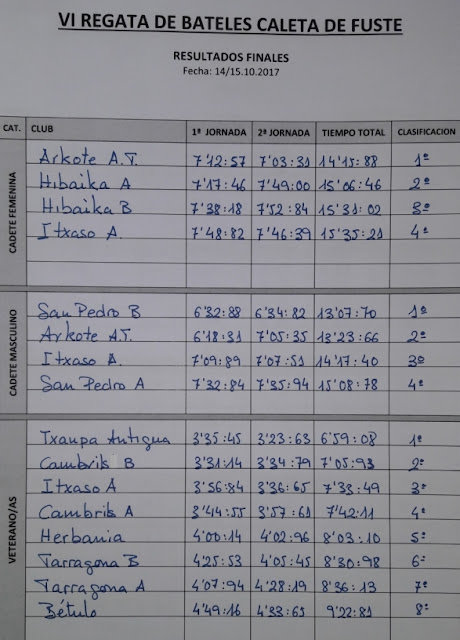 VI REGATA DE BATELES CALETA DE FUSTE
RESULTADOS FINALES
Fecha: 14/15.10.2017
CAT. CLUB 1ª JORNADA 2ª JORNADA TIEMPO TOTAL CLASIFICACION
CADETE FEMENINA
Arkote A.T. 7'12:57 7'03:31 14'15:88 1º
Hibaika A 7'17:46 7'49:00 15'06:46 2º
Hibaika B 7'38:18 7'52:84 15'31:02 3º
Itxaso A. 7'48:82 7'46:39 15'35:21 4º
CADETE MASCULINO
San Pedro B 6'32:88 6'34:82 13'07:70 1º
Arkote A.T. 6'18:31 7'05:35 13'23:66 2º
Itxaso A. 7'09:89 7'07:51 14'17:40 3º
San Pedro A 7'32:84 7'35:94 15'08:78 4º
VETERANO/AS
Txanpa Antigua 3'35:45 3'23:63 6'59:08 1º
Cambrils B 3'31:14 3'34:79 7'05:93 2º
Itxaso A 3'56:84 3'36:65 7'33:49 3º
Cambrils A 3'44:55 3'57:61 7'42:11 4º
Herbania 4'00:14 4'02:96 8'03:10 5º
Tarragona B 4'25:53 4'05:45 8'30:98 6º
Tarragona A 4'07:94 4'28:19 8'36:13 7º
Bétulo 4'49:16 4'33:65 9'22:81 8º